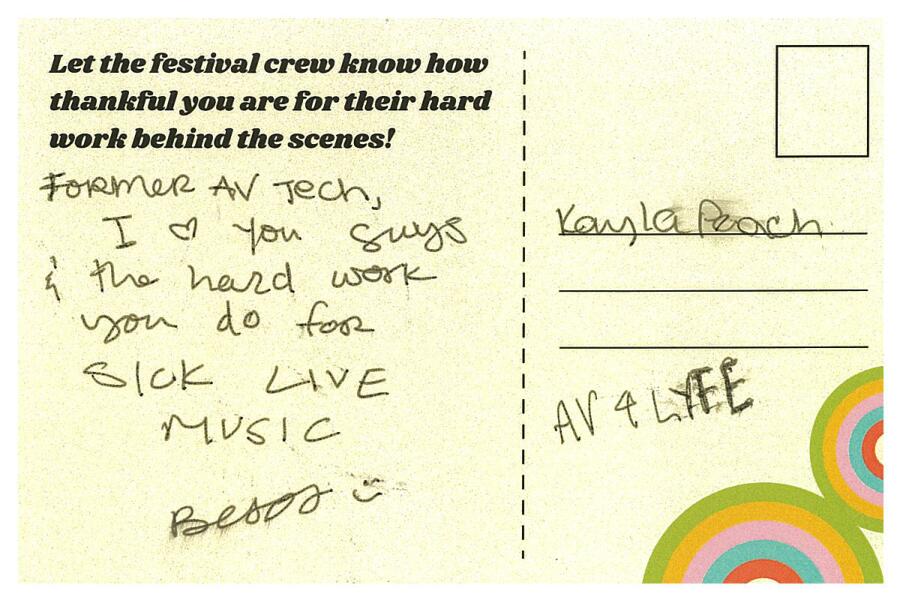 Let the festival crew know how
thankful you are for their hard
work behind the scenes!
FORMER AV Tech,
I ♡ you guys
& the hard work
you do for
SICK LIVE
MUSIC
Besos :)
Kayla Peach
AV 4 LYFE